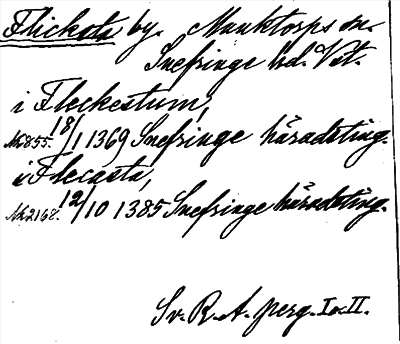 Flicksta by. Munktorps sn.
Snefringe hd. Vst.
i Fleckestum,
Nr 855. 18/1 1369 Snefringe häradsting.
i Flecasta,
Nr 2168. 12/10 1385 Snefringe häradsting.
Sv. R. A. perg. I o. II.